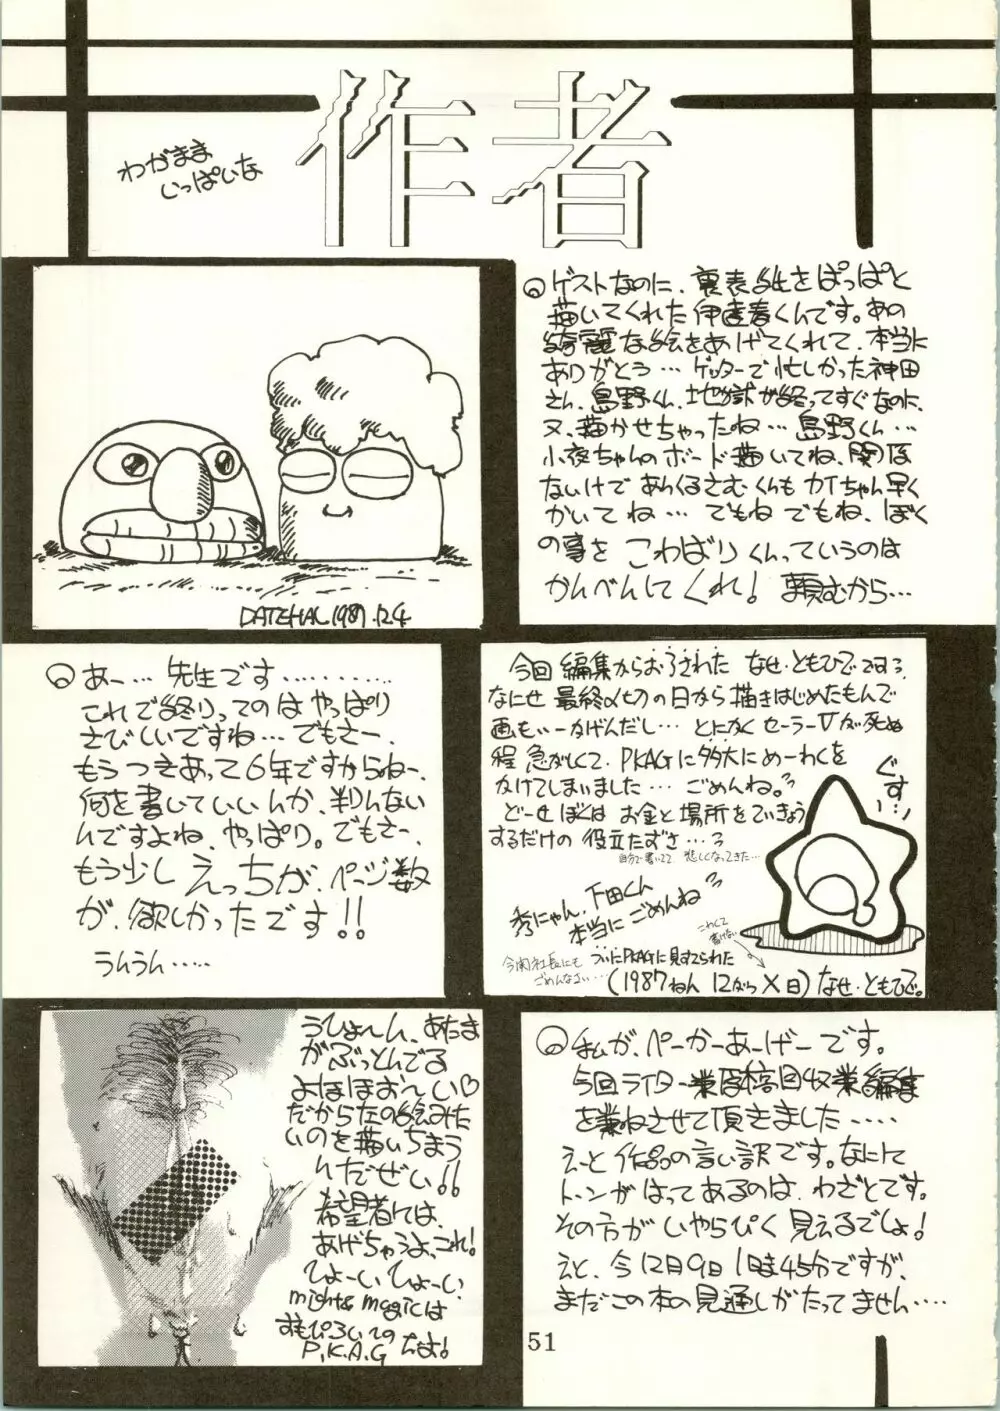 作者
わがまま
いっぱいな
ゲストなのに、裏表紙をぱっぱと
描いてくれた伊達春くんです。あの
綺麗な絵をあげてくれて、本当に
ありがとう… ゲッターで忙しかった神田
さん、島野くん、地獄が終ってすぐなのに、
又、描かせちゃったね… 島野くん…
小夜ちゃんのボード描いてね、関係
ないけで あらくるさむくんもカイちゃん早く
かいてね… でもね でもね、ぼく
の事を こわばりくん、っていうのは
かんべんしてくれ! 頼むから…
DATEHAL 1987.12.4
あー… 先生です…………
これで終りってのはやっぱり
さびしいですね… でもさー、
もうつきあって6年ですからねー、
何を書いていいんか、判んない
んですよね、やっぱり。でもさー、
もう少しえっちが、ページ数
が、欲しかったです!!
うんうん……
今回 編集からおろされた なせ・ともひでです?
なにせ 最終〆切の日から描きはじめたもんで
画もいーかげんだし… とにかく セーラーVが死ぬ
程 急がしくて、PKAGに多大にめーわくを
かけてしまいました… ごめんね。
どーせぼくは お金と場所をていきょう
するだけの 役立たずさ…
自分で書いてて 悲しくなってきた…
ぐすっ
秀にゃん、下田くん
本当にごめんね
こわくて
書けない
今関社長にも
ごめんなさい…
ついにPKAGに見すてられた
(1987ねん 12がつ X日) なせ・ともひで。
うひょ〜ん、あたま
がぶっとんでる
よほほお〜い♡
だから左の絵みた
いのを描いちまう
んだぜい!!
希望者には、
あげちゃうよ、これ!
ひょーい ひょーい
might & magicは
おもぴろいての
P.K.A.G だよ!
私が、ぺーかーあーげーです。
今回ライター業原稿回収業編集
を兼ねさせて頂きました……
えーと作品の言い訳です。なにして
トーンがはってあるのは、わざとです。
その方がいやらぴく見えるでしょ!
えと、今12月9日1時45分ですが、
まだこの本の見通しがたってません……
51